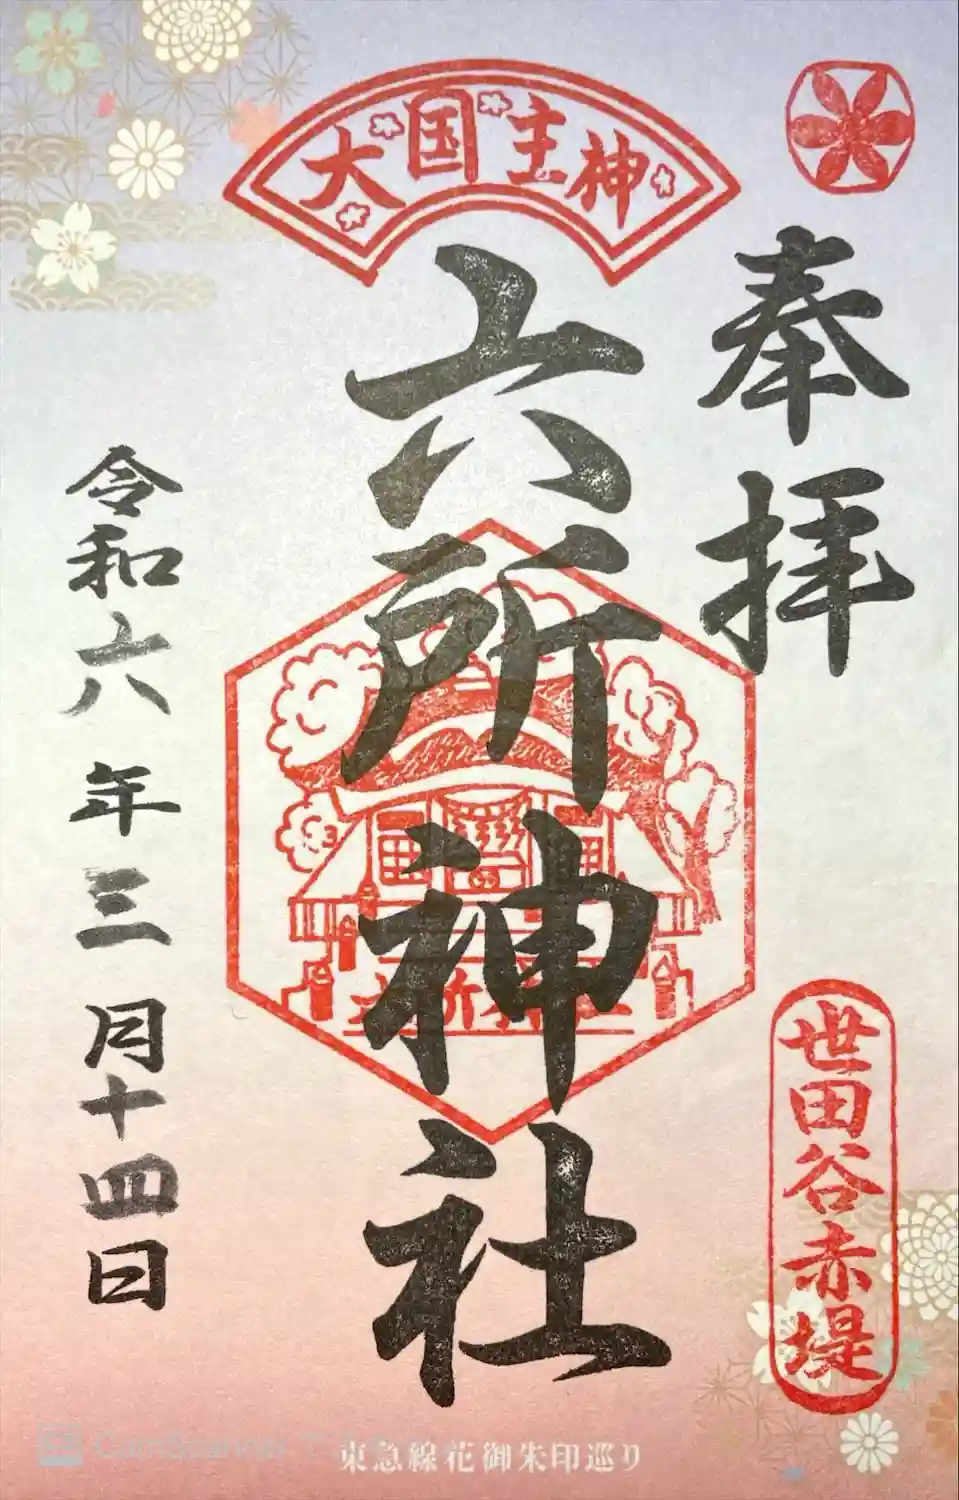 大国主神
奉拝
六所神社
世田谷赤堤
令和六年三月十四日
東急線花御朱印巡り
CamScanner で